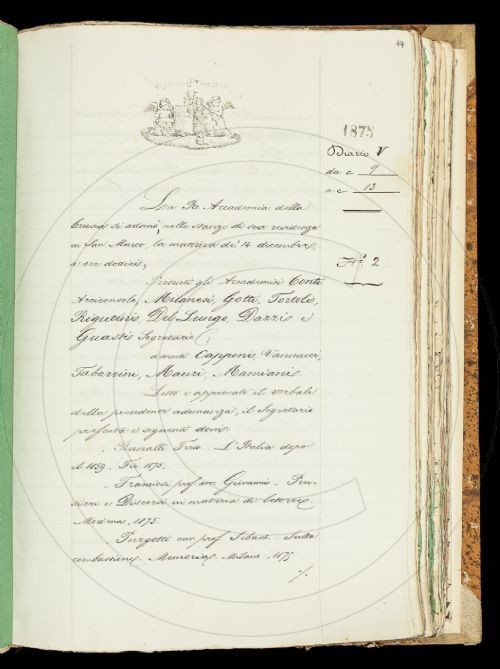 44
1875
Diario V
da c 9
a c 13
N.° 2
La Re. Accademia della
Crusca si adunò nelle stanze di sua residenza
in San Marco, la mattina de' 14 decembre,
a ore dodici;
Presenti gli Accademici Conti
Arciconsolo, Milanesi, Gotti, Tortoli,
Rigutini, Del Lungo, Dazzi e
Guasti Segretario;
assenti Capponi, Vannucci,
Tabarrini, Mauri, Mamiani.
Letto e approvato il verbale
della precedente adunanza, il Segretario
presentò i seguenti doni:
Ranalli Ferd. L'Italia dopo
il 1859. Fir. 1875.
Franciosi prof. Giovanni. Pen-
sieri e Discorsi in materia di lettere.
Modena, 1875.
Purgotti cav. prof. Sebast. Sulla
combustione. Memoria. Milano, 1875
./.